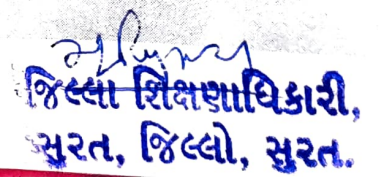 જિલ્લા શિક્ષણાધિકારી,
સુરત, જિલ્લો, સુરત.